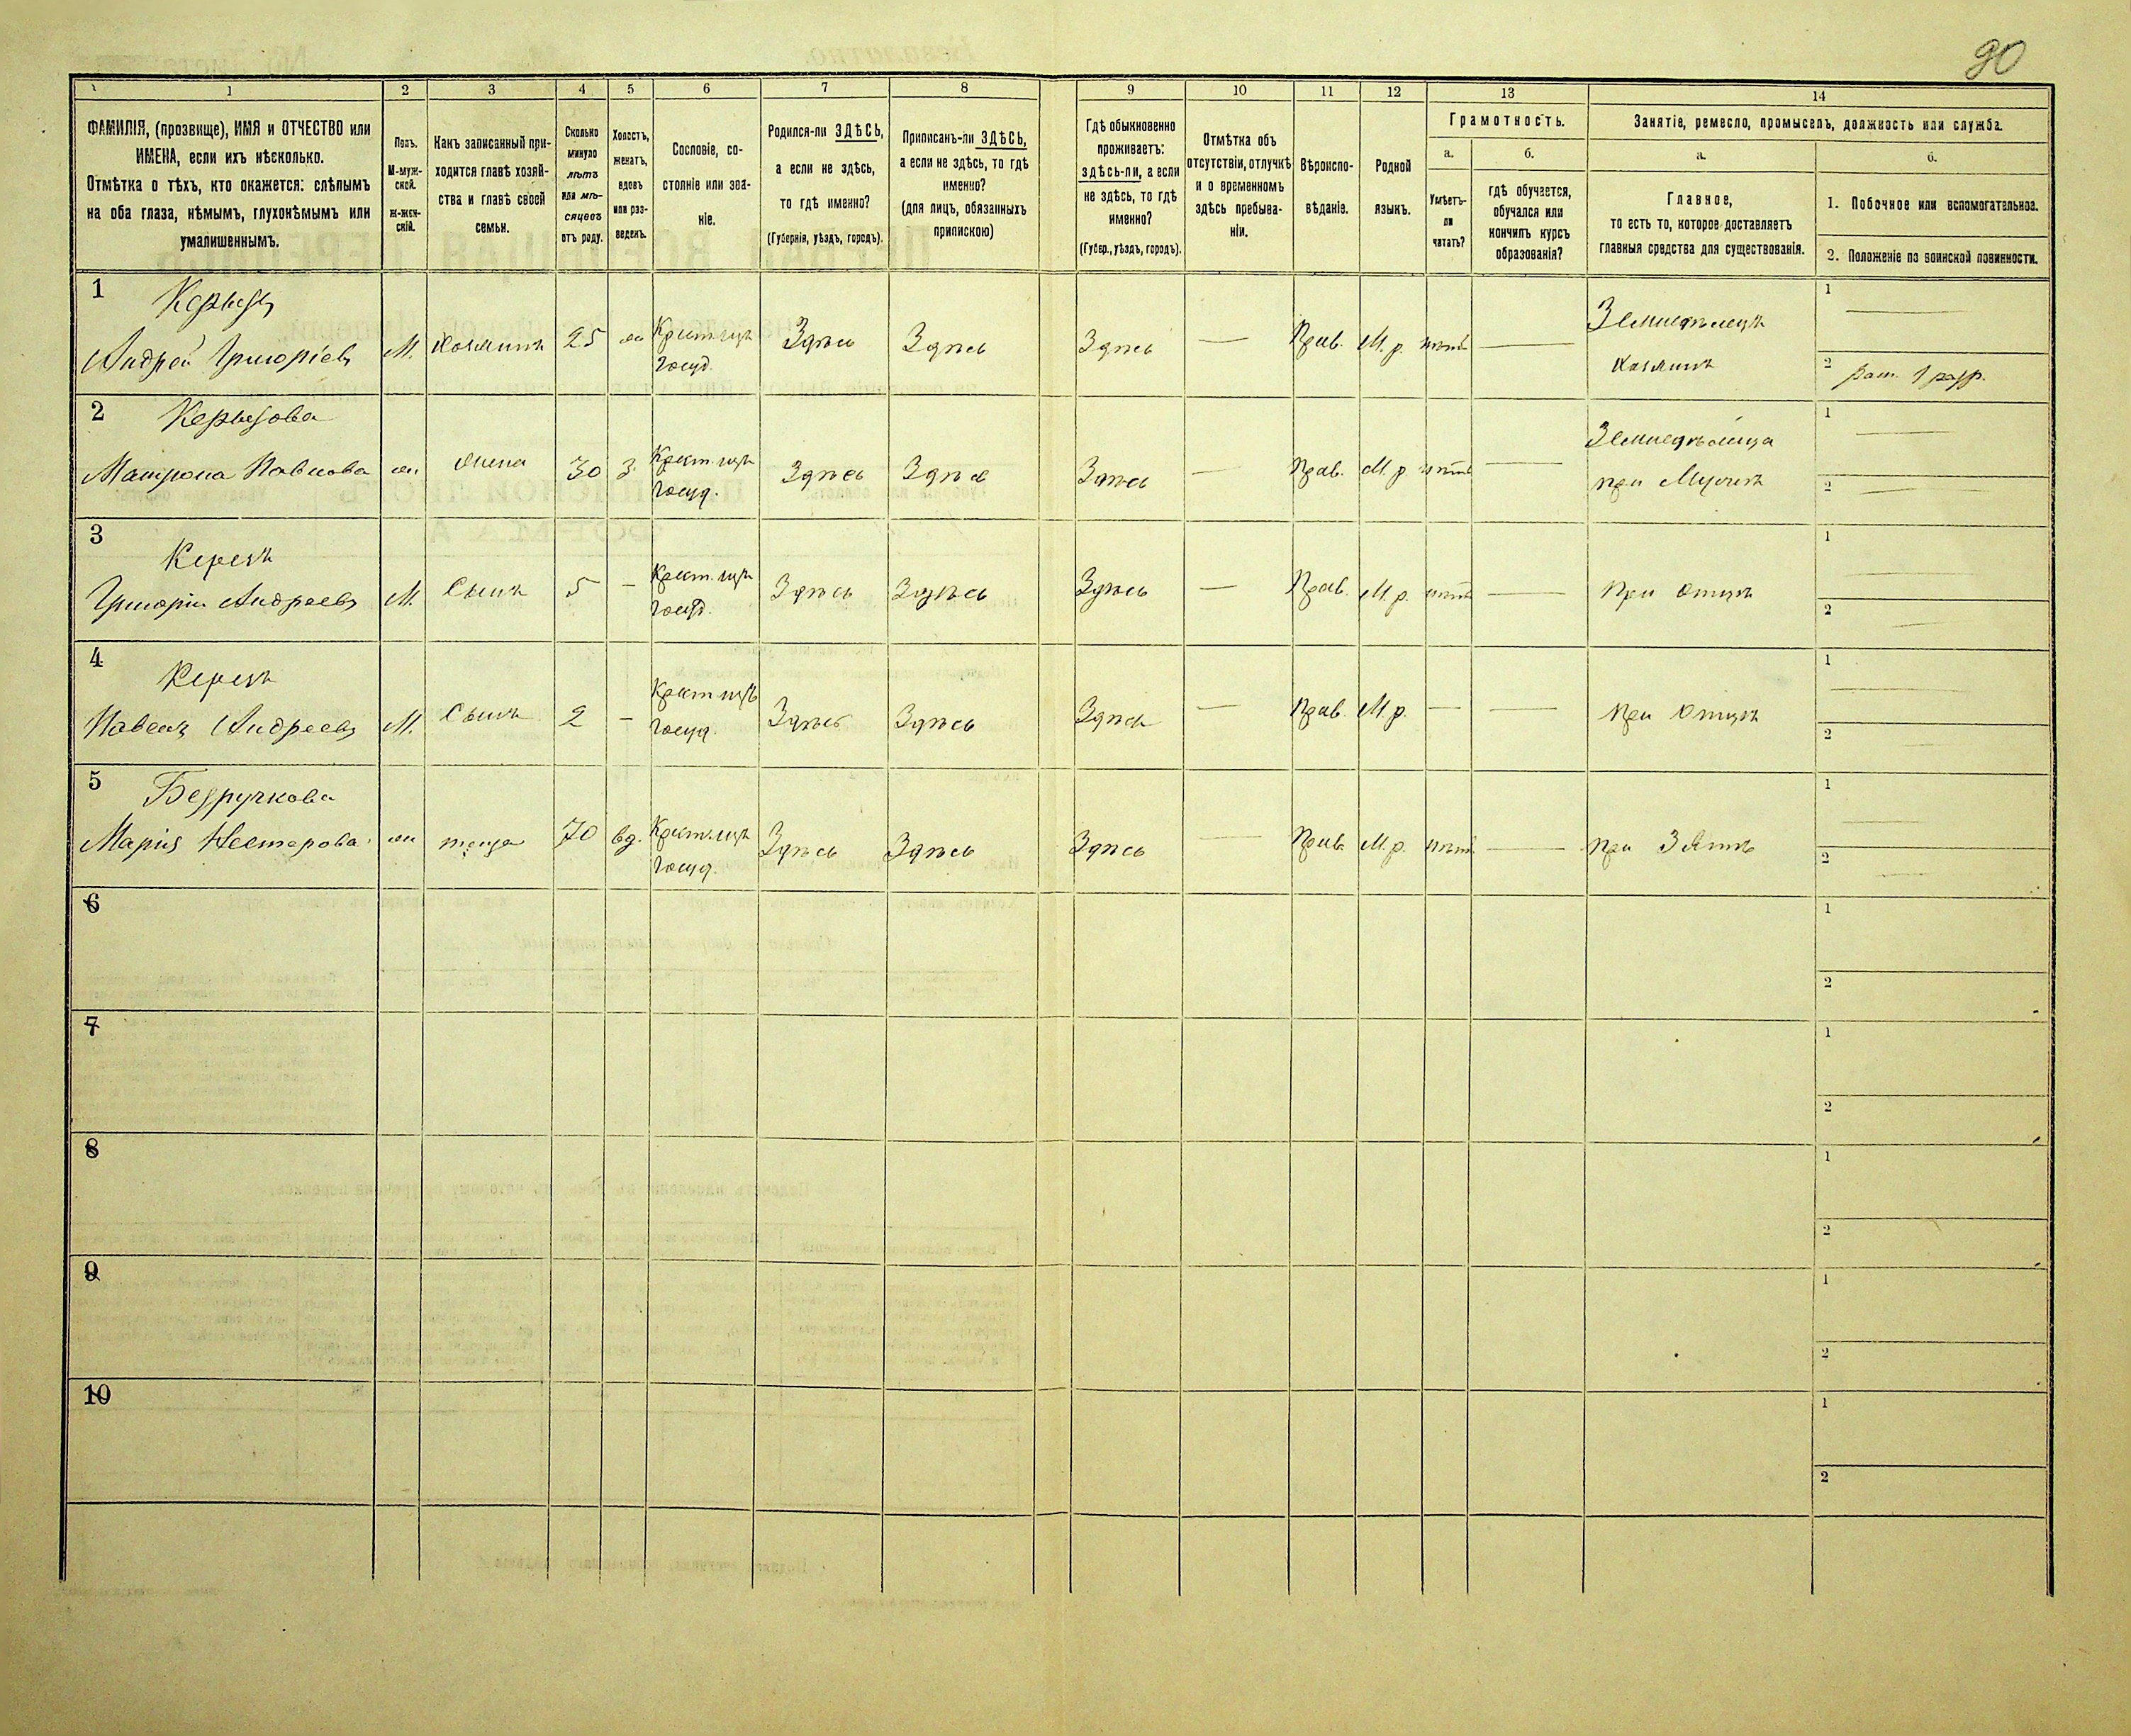 90
1 2 3 4 5 6 7 8 9 10 11 12 13 14
ФАМИЛІЯ, (прозвище), ИМЯ и ОТЧЕСТВО или
ИМЕНА, если ихъ нѣсколько.
Отмѣтка о тѣхъ, кто окажется: слѣпымъ
на оба глаза, нѣмымъ, глухонѣмымъ или
умалишеннымъ.
Полъ.
М-муж-
ской.
Ж-жен-
скій.
Какъ записанный при-
ходится главѣ хозяй-
ства и главѣ своей
семьи.
Сколько
минуло
лѣтъ
или мѣ-
сяцевъ
отъ роду.
Холостъ,
женатъ,
вдовъ
или раз-
веденъ.
Сословіе, со-
стояніе или зва-
ніе.
Родился-ли ЗДѢСЬ,
а если не здѣсь,
то гдѣ именно?
(Губернія, уѣздъ, городъ).
Приписанъ-ли ЗДѢСЬ,
а если не здѣсь, то гдѣ
именно?
(для лицъ, обязанныхъ
припискою)
Гдѣ обыкновенно
проживаетъ:
здѣсь-ли, а если
не здѣсь, то гдѣ
именно?
(Губер., уѣздъ, городъ).
Отмѣтка объ
отсутствіи, отлучкѣ
и о временномъ
здѣсь пребыва-
ніи.
Вѣроиспо-
вѣданіе.
Родной
языкъ.
Грамотность.
а.
Умѣетъ-
ли
читать?
б.
гдѣ обучается,
обучался или
кончилъ курсъ
образованія?
Занятіе, ремесло, промыселъ, должность или служба.
а.
Главное,
то есть то, которое доставляетъ
главныя средства для существованія.
б.
1. Побочное или вспомогательное.
2. Положеніе по воинской повинности.
1
Андрей Григоріевъ М. Хозяинъ 25 ж Крест. изъ Госуд. Здѣсь Здѣсь Здѣсь — Прав. М. р. нѣтъ — Земледѣлецъ Хозяинъ
1 —
2 Рат. 1 разр.
2
Матрона Павлова ж жена 30 З. Крест. изъ Госуд. Здѣсь Здѣсь Здѣсь — Прав. М. р. нѣтъ — при Мужѣ
1 —
2 —
3 Керезъ
Григорій Андреевъ М. Сынъ 5 — Крест. изъ Госуд. Здѣсь Здѣсь Здѣсь — Прав. М. р. нѣтъ — При отцѣ
1 —
2 —
4 Керезъ
Павелъ Андреевъ М. Сынъ 2 — Крест. изъ Госуд. Здѣсь Здѣсь Здѣсь — Прав. М. р. — — При отцѣ
1 —
2 —
5 Безручкова
Марія Нестерова ж теща 70 вд. Крест. изъ Госуд. Здѣсь Здѣсь Здѣсь — Прав. М. р. нѣтъ — при Зятѣ
1 —
2 —
6
1
2
7
1
2
8
1
2
9
1
2
10
1
2